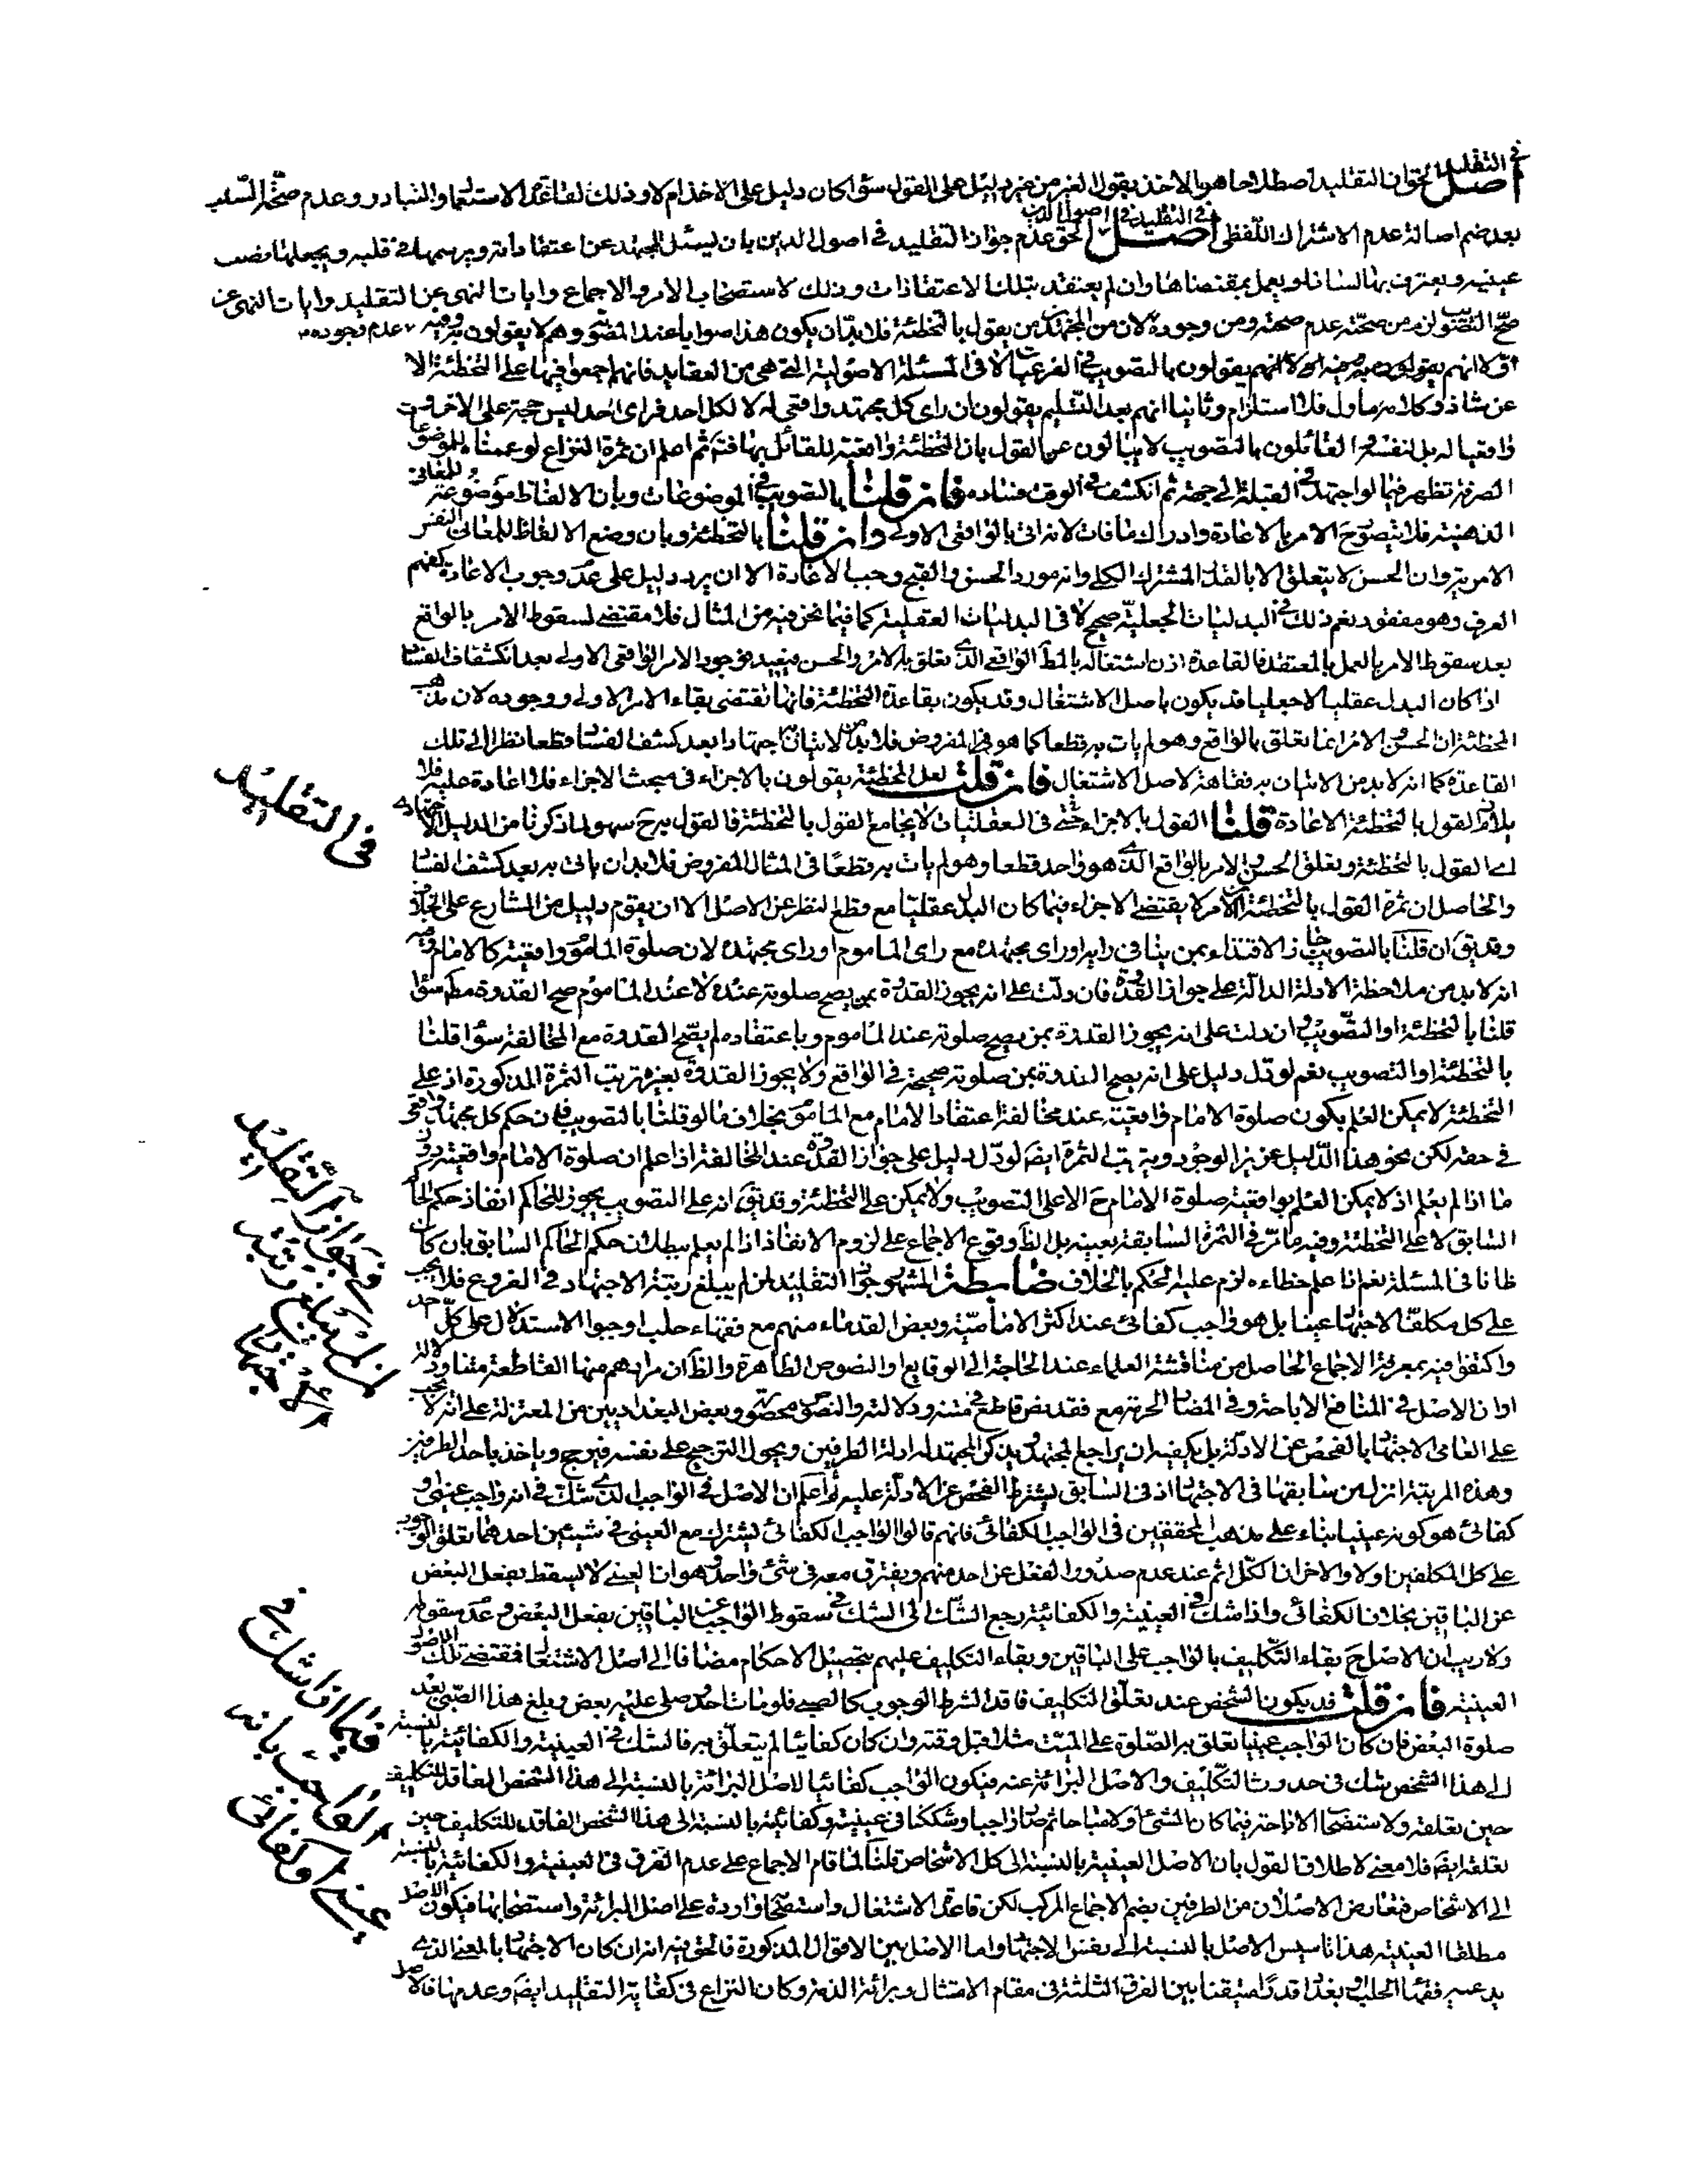 في التقليد
اصل الحق ان التقليد اصطلاحا هو الاخذ بقول الغير من غير دليل على القول سواء كان دليل على الاخذ ام لا وذلك لقاعدة الاستعمال والتبادر وعدم صحة السلب
في التقليد في اصول الدين
بعد ضم اصالة عدم الاشتراك اللفظى اصل الحق عدم جواز التقليد في اصول الدين بان يسئل المجتهد عن اعتقاداته ويرسمها في قلبه ويجعلها نصب
عينيه ويعترف بها لسانا ويعمل بمقتضاها وان لم يعتقد بتلك الاعتقادات وذلك لاستصحاب الامر والاجماع وايات النهى عن التقليد وايات النهى عن
صح التصويب لزم من صحته عدم صحته ومن وجوده عدم وجوده لان من المجتهدين من يقول بالتخطئة فلا بد ان يكون هذا صوابا عند المصوبة وهم لا يقولون به وفيه
اولا انهم يقولون بالتصويب في الفرعيات لا في المسئلة الاصولية التي هي من العقايد فانهم اجمعوا فيها على التخطئة الا
عن شاذ وكلامه ماول فلا استلزام وثانيا انهم بعد التسليم يقولون ان راى كل مجتهد واقعى له لا لكل احد فراى احد ليس حجة على الاخر
واقعيا له بل لنفسه القائلون بالتصويب لا يبالون عن القول بان التخطئة واقعية للقائل بها فتم ثم اعلم ان ثمرة النزاع لو عممنا الموضوعات
الصرفة تظهر فيما لو اجتهد في القبلة الى جهة ثم انكشف في الوقت فساده فان قلنا بالتصويب في الموضوعات وبان الالفاظ موضوعة للمعاني
الذهنية فلا يتصور ح الامر بالاعادة وادراك ما فات لانه اتى بالواقعى الاولى وان قلنا بالتخطئة وبان وضع الالفاظ للمعاني النفس
الامرية وان الحسن لا يتعلق الا بالقدر المشترك الكلى وانه مورد الحسن والقبح وجب الاعادة الا ان يرد دليل على عدم وجوب الاعادة كفهم
العرف وهو مفقود نعم ذلك في البدليات الجعلية صحيح لا في البدليات العقلية كما فيما نحن فيه من المثال فلا مقتضى لسقوط الامر بالواقع
بعد سقوط الامر بالعمل بالمعتقد فالقاعدة اذن اشتغاله بالمط الواقعي الذي تعلق به الامر والحسن فيعيد بوجود الامر الواقعى الاولى بعد انكشاف الفساد
اذا كان البدل عقليا لا جعليا قد يكون باصل الاشتغال وقد يكون بقاعدة التخطئة فانها تقتضى بقاء الامر الاولى ووجوده لان مذهب
المخطئة ان الحسن والامر انما تعلق بالواقع وهو لم يات به قطعا كما هو في المفروض فلا بد من الاتيان به اجتهادا بعد كشف الفساد قطعا نظرا الى تلك
القاعدة كما انه لا بد من الاتيان به فقاهة لاصل الاشتغال فان قلت لعل المخطئة يقولون بالاجزاء في مبحث الاجزاء فلا اعادة عليه فلا
يلازم القول بالتخطئة الاعادة قلنا القول بالاجزاء حتى في العقليات لا يجامع القول بالتخطئة فالقول به ح سهو لما ذكرنا من الدليل الاجتهادى
اى القول بالتخطئة وتعلق الحسن والامر بالواقع الذي هو واحد قطعا وهو لم يات به قطعا في المثال المفروض فلا بد ان ياتى به بعد كشف الفساد
والحاصل ان ثمرة القول بالتخطئة ان الامر لا يقتضى الاجزاء فيما كان البدل عقليا مع قطع النظر عن الاصل الا ان يقوم دليل من الشارع على الخلاف
وقد يق ان قلنا بالتصويب جاز الاقتداء بمن ينافى رايه او راى مجتهده مع راى الماموم او راى مجتهده لان صلوة الماموم واقعية كالامام وفيه
انه لا بد من ملاحظة الادلة الدالة على جواز القدوة فان دلت على انه يجوز القدوة بمن يصح صلوته عنده لا عند الماموم صح القدوة مط سواء
قلنا بالتخطئة او التصويب وان دلت على انه يجوز القدوة بمن يصح صلوته عند الماموم وباعتقاده لم يصح القدوة مع المخالفة سواء قلنا
بالتخطئة او التصويب نعم لو دل دليل على انه يصح القدوة بمن صلوته صحيحة في الواقع ولا يجوز القدوة بغيره ترتب الثمرة المذكورة اذ على
التخطئة لا يمكن العلم بكون صلوة الامام واقعية عند مخالفة اعتقاد الامام مع الماموم بخلاف ما لو قلنا بالتصويب فان حكم كل مجتهد واقعى
في حقه لكن نحو هذا الدليل عزيز الوجود ويترتب الثمرة ايضا لو دل دليل على جواز القدوة عند المخالفة اذا علم ان صلوة الامام واقعية دون
ما اذا لم يعلم اذ لا يمكن العلم بواقعية صلوة الامام ح الا على التصويب ولا يمكن على التخطئة وقد يق انه على التصويب يجوز للحاكم انفاذ حكم الحاكم
السابق لا على التخطئة وفيه ما مر في الثمرة السابقة بعينه بل الظ وقوع الاجماع على لزوم الانفاذ اذا لم يعلم ببطلان حكم الحاكم السابق بان كان
ظانا في المسئلة نعم اذا علم خطاءه لزم عليه الحكم بالخلاف ضابطة المشهور جواز التقليد لمن لم يبلغ رتبة الاجتهاد في الفروع فلا يجب
على كل مكلف الاجتهاد عينا بل هو واجب كفائى عند اكثر الامامية وبعض القدماء منهم مع فقهاء حلب اوجبوا الاستدلال على كل احد
واكتفوا فيه بمعرفة الاجماع الحاصل من مناقشة العلماء عند الحاجة الى الوقايع او النصوص الظاهرة والظ ان مرادهم منها القاطعة متنا ودلالة
او ان الاصل في المنافع الاباحة وفي المضار الحرمة مع فقد نص قاطع في متنه ودلالته والنصوص محصورة وبعض البغداديين من المعتزلة على انه لا يجب
على العامى الاجتهاد بالفحص عن الادلة بل يكفيه ان يراجع المجتهد ويذكر المجتهد له ادلة الطرفين ويحول الترجيح على نفسه فيرجح وياخذ باحد الطرفين
وهذه المرتبة انزل من سابقها في الاجتهاد اذ في السابق يشترط الفحص عن الادلة عليه ثم اعلم ان الاصل في الواجب الذي شك في انه واجب عينى او
كفائى هو كونه عينيا بناء على مذهب المحققين في الواجب الكفائى فانهم قالوا الواجب الكفائى يشترك مع العينى في شيئين احدهما تعلق الوجوب
على كل المكلفين اولا والاخر ان الكل اثم عند عدم صدور الفعل عن احد منهم ويفترق معه في شئ واحد وهو ان العينى لا يسقط بفعل البعض
عن الباقين بخلاف الكفائى واذا شك في العينية والكفائية رجع الشك الى الشك في سقوط الواجب عن الباقين بفعل البعض وعدم سقوطه
ولا ريب ان الاصل ح بقاء التكليف بالواجب على الباقين وبقاء التكليف عليهم بتحصيل الاحكام مضافا الى اصل الاشتغال فمقتضى تلك الاصول
العينية فان قلت قد يكون الشخص عند تعلق التكليف فاقد الشرط الوجوب كالصبى فلو مات احد وصلى عليه بعض وبلغ هذا الصبى بعد
صلوة البعض فان كان الواجب عينيا تعلق به الصلوة على الميت مثلا قبل وقته وان كان كفائيا لم يتعلق به فالشك في العينية والكفائية بالنسبة
الى هذا الشخص شك في حدوث التكليف والاصل البرائة عنه فيكون الواجب كفائيا لاصل البرائة بالنسبة الى هذا الشخص الفاقد للتكليف
حين تعلقه ولاستصحاب الاباحة فيما كان الشئ اولا مباحا ثم صار واجبا وشككنا في عينيته وكفائيته بالنسبة الى هذا الشخص الفاقد للتكليف حين
تعلقه ايضا فلا معنى لاطلاق القول بان الاصل العينية بالنسبة الى كل الاشخاص قلنا لما قام الاجماع على عدم الفرق في العينية والكفائية بالنسبة
الى الاشخاص فتعارض الاصلان من الطرفين بضم الاجماع المركب لكن قاعدة الاشتغال واستصحابه واردة على اصل البرائة واستصحابها فيكون الاصل
مطلقا العينية هذا تاسيس الاصل بالنسبة الى نفس الاجتهاد واما الاصل بين الاقوال المذكورة فالحق فيه انه ان كان الاجتهاد بالمعنى الذي
يدعيه فقهاء الحلب وبغداد قدرا متيقنا بين الفرق الثلثة في مقام الامتثال وبرائة الذمة وكان النزاع في كفاية التقليد ايضا وعدمها فالاصل
في التقليد
في جواز التقليد لمن لم يبلغ رتبة الاجتهاد
فيما اذا شك في الواجب بانه عينى او كفائى